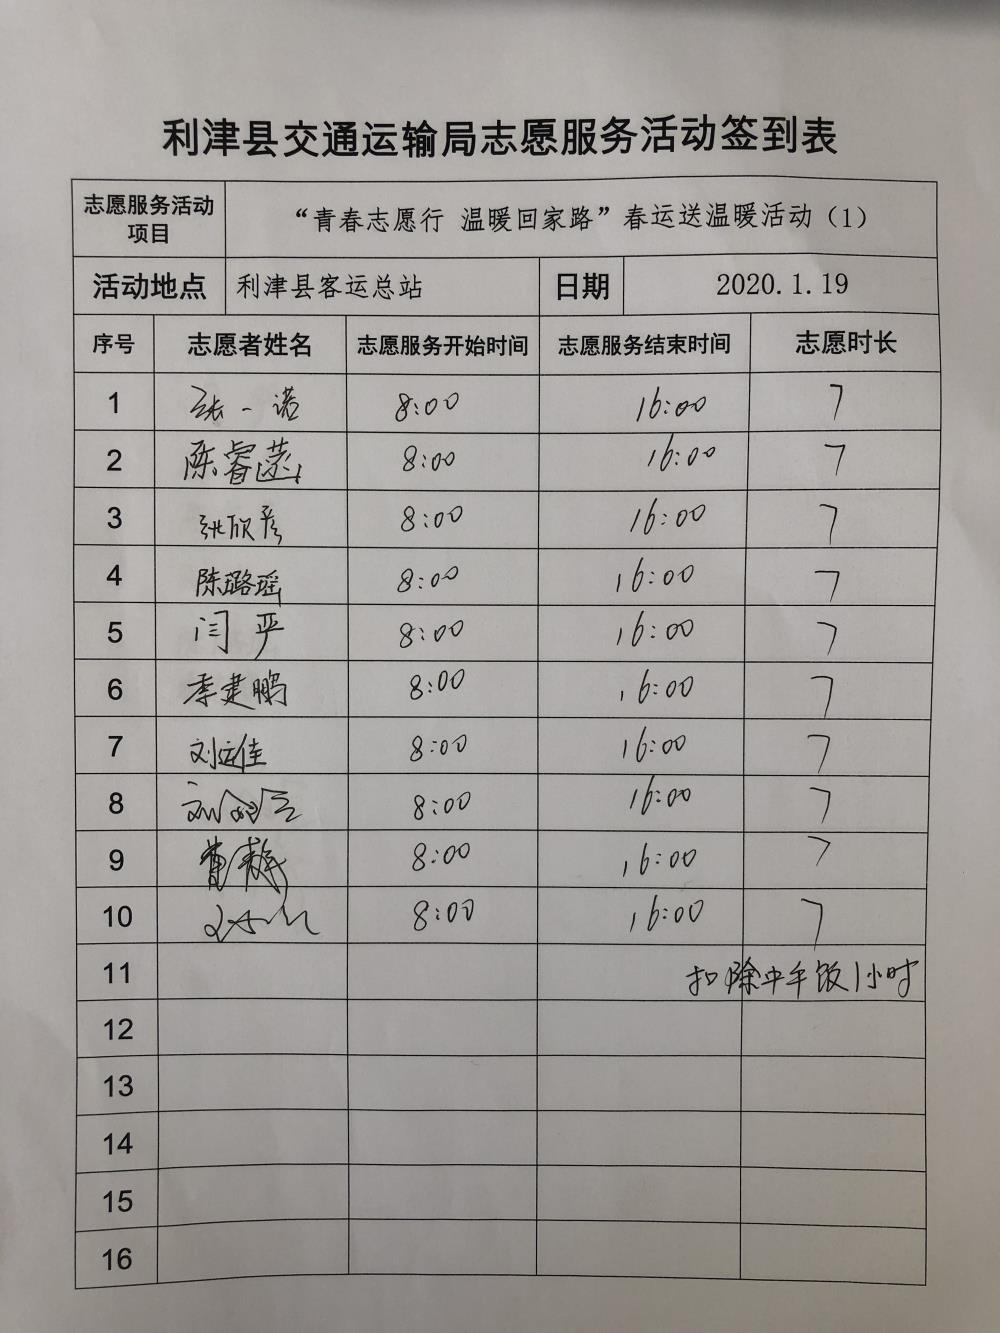 利津县交通运输局志愿服务活动签到表
志愿服务活动项目 “青春志愿行 温暖回家路”春运送温暖活动（1）
活动地点 利津县客运总站 日期 2020.1.19
序号 志愿者姓名 志愿服务开始时间 志愿服务结束时间 志愿时长
1 张一诺 8:00 16:00 7
2 陈睿 8:00 16:00 7
3 张欣彦 8:00 16:00 7
4 陈璐瑶 8:00 16:00 7
5 闫严 8:00 16:00 7
6 李建鹏 8:00 16:00 7
7 刘运佳 8:00 16:00 7
8 8:00 16:00 7
9 曹静 8:00 16:00 7
10 8:00 16:00 7
11 扣除中午饭1小时
12
13
14
15
16